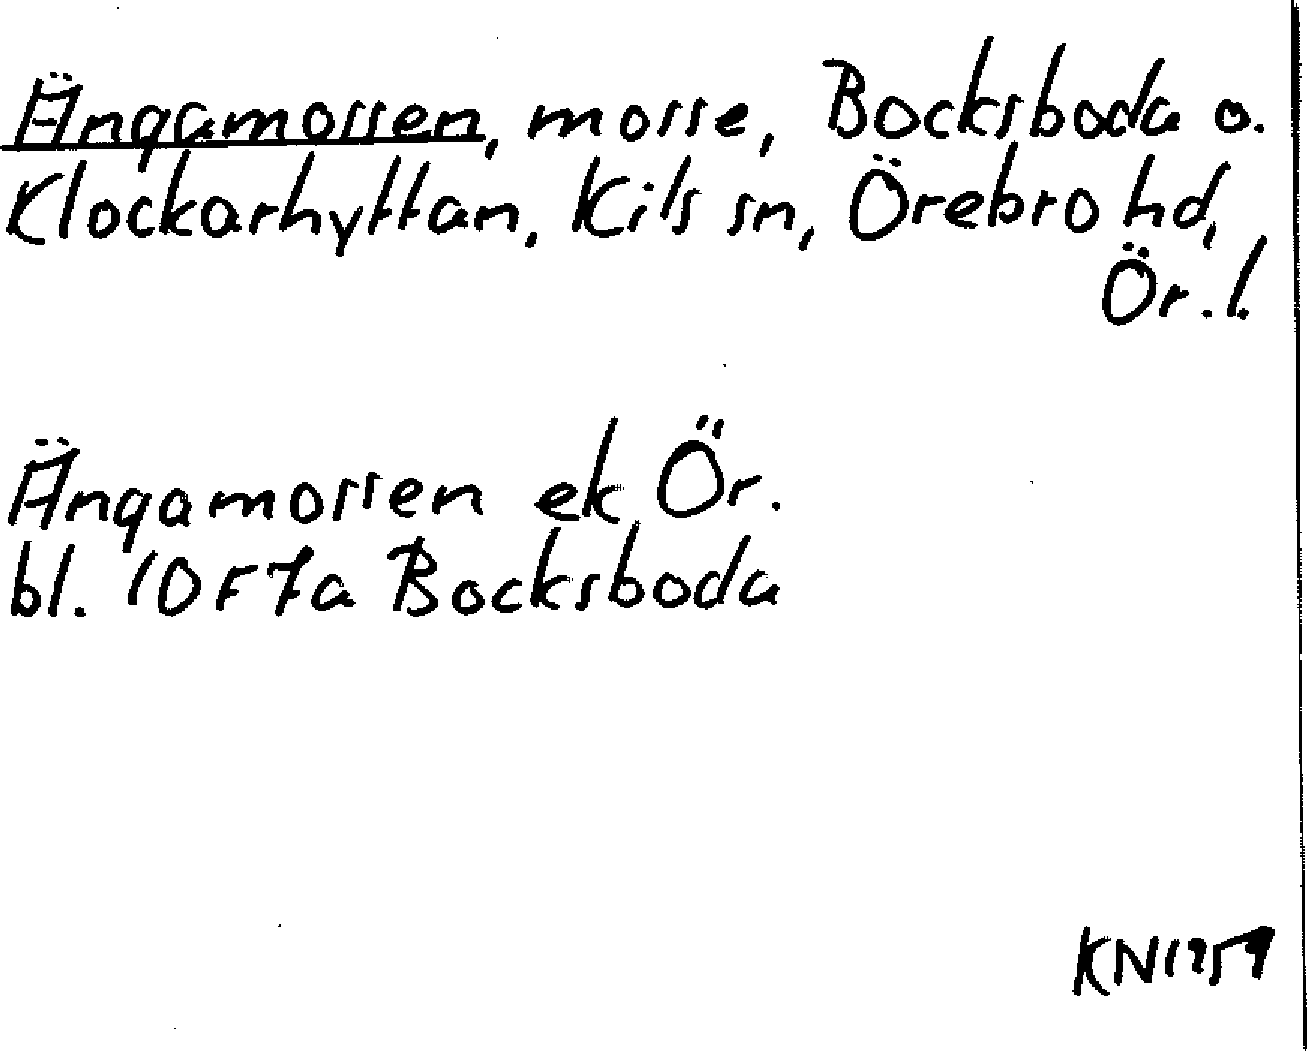 Ängamossen, mosse, Bocksboda o.
Klockarhyttan, Kils sn, Örebro hd,
Ör. l.
Ängamossen ek Ör.
bl. 10F7a Bocksboda
KN 1959